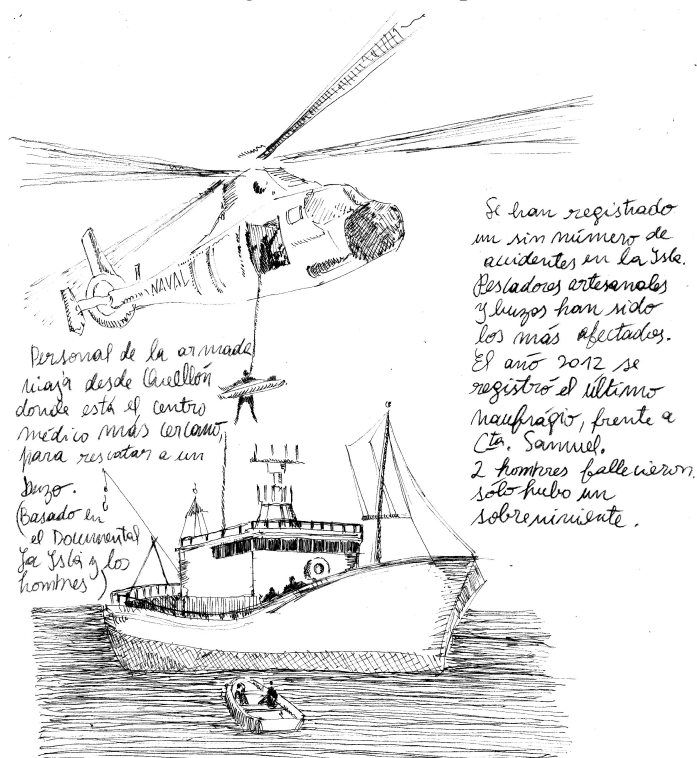 NAVAL
Personal de la armada
viaja desde Quellón
donde está el centro
médico más cercano,
para rescatar a un
buzo.
(Basado en
el Documental
La Isla y los
hombres)
Se han registrado
un sin número de
accidentes en la Isla.
Pescadores artesanales
y buzos han sido
los más afectados.
El año 2012 se
registró el último
naufrágio, frente a
Cta. Samuel.
2 hombres fallecieron
sólo hubo un
sobreviviente.